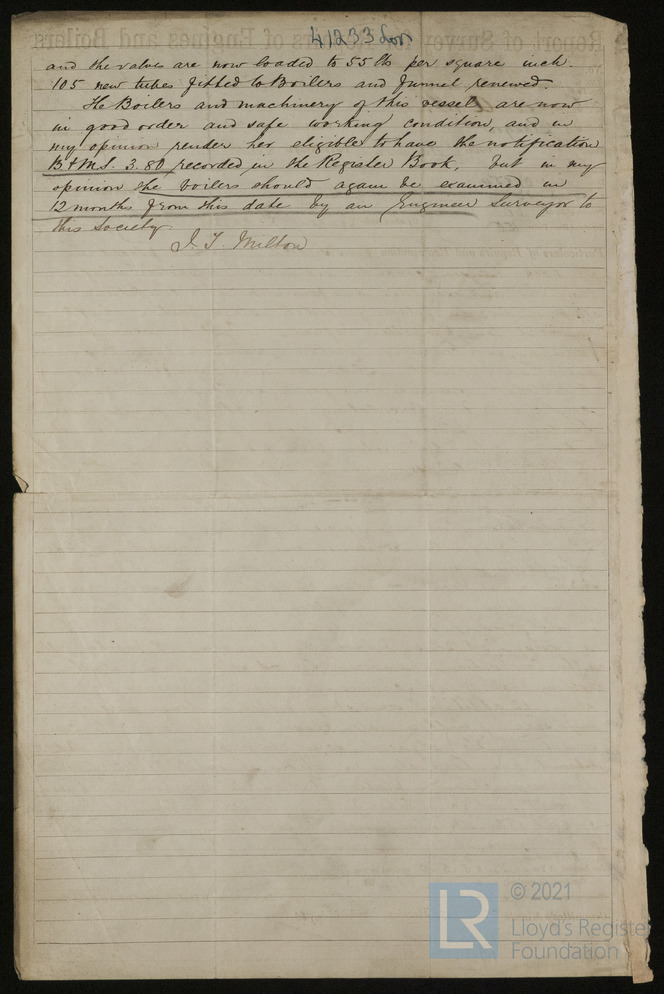 41233 Lon
and the valves are now loaded to 55 lb per square inch.
105 new tubes fitted to Boilers and funnel renewed.
The Boilers and machinery of this vessel are now
in good order and safe working condition, and in
my opinion render her eligible to have the notification
B & M.S. 3.80 recorded in the Register Book, but in my
opinion the boilers should again be examined in
12 months from this date by an Engineer Surveyor to
this Society.
J. T. Milton
LR
© 2021
Lloyd's Register
Foundation